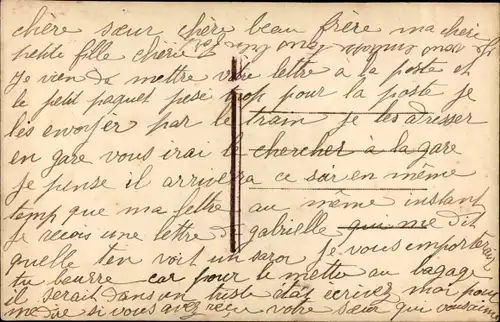 chère sœur chère beau frère ma chère
petite fille cherie
Je vien de mettre votre lettre à la poste et
le petit paquet pesé trop pour la poste je
les envoyér par le train je les adresser
en gare vous irai le chercher à la gare
je pense il arriverra ce soir en même
temp que ma lettre au même instant
je recois une lettre de gabrielle qui me dit
quelle ten voit un je vous emporterai
tu beurre car pour le mettre au bagage
il serait dans un triste état écrivez moi pour
me dire si vous avez recu votre sœur qui vous aime